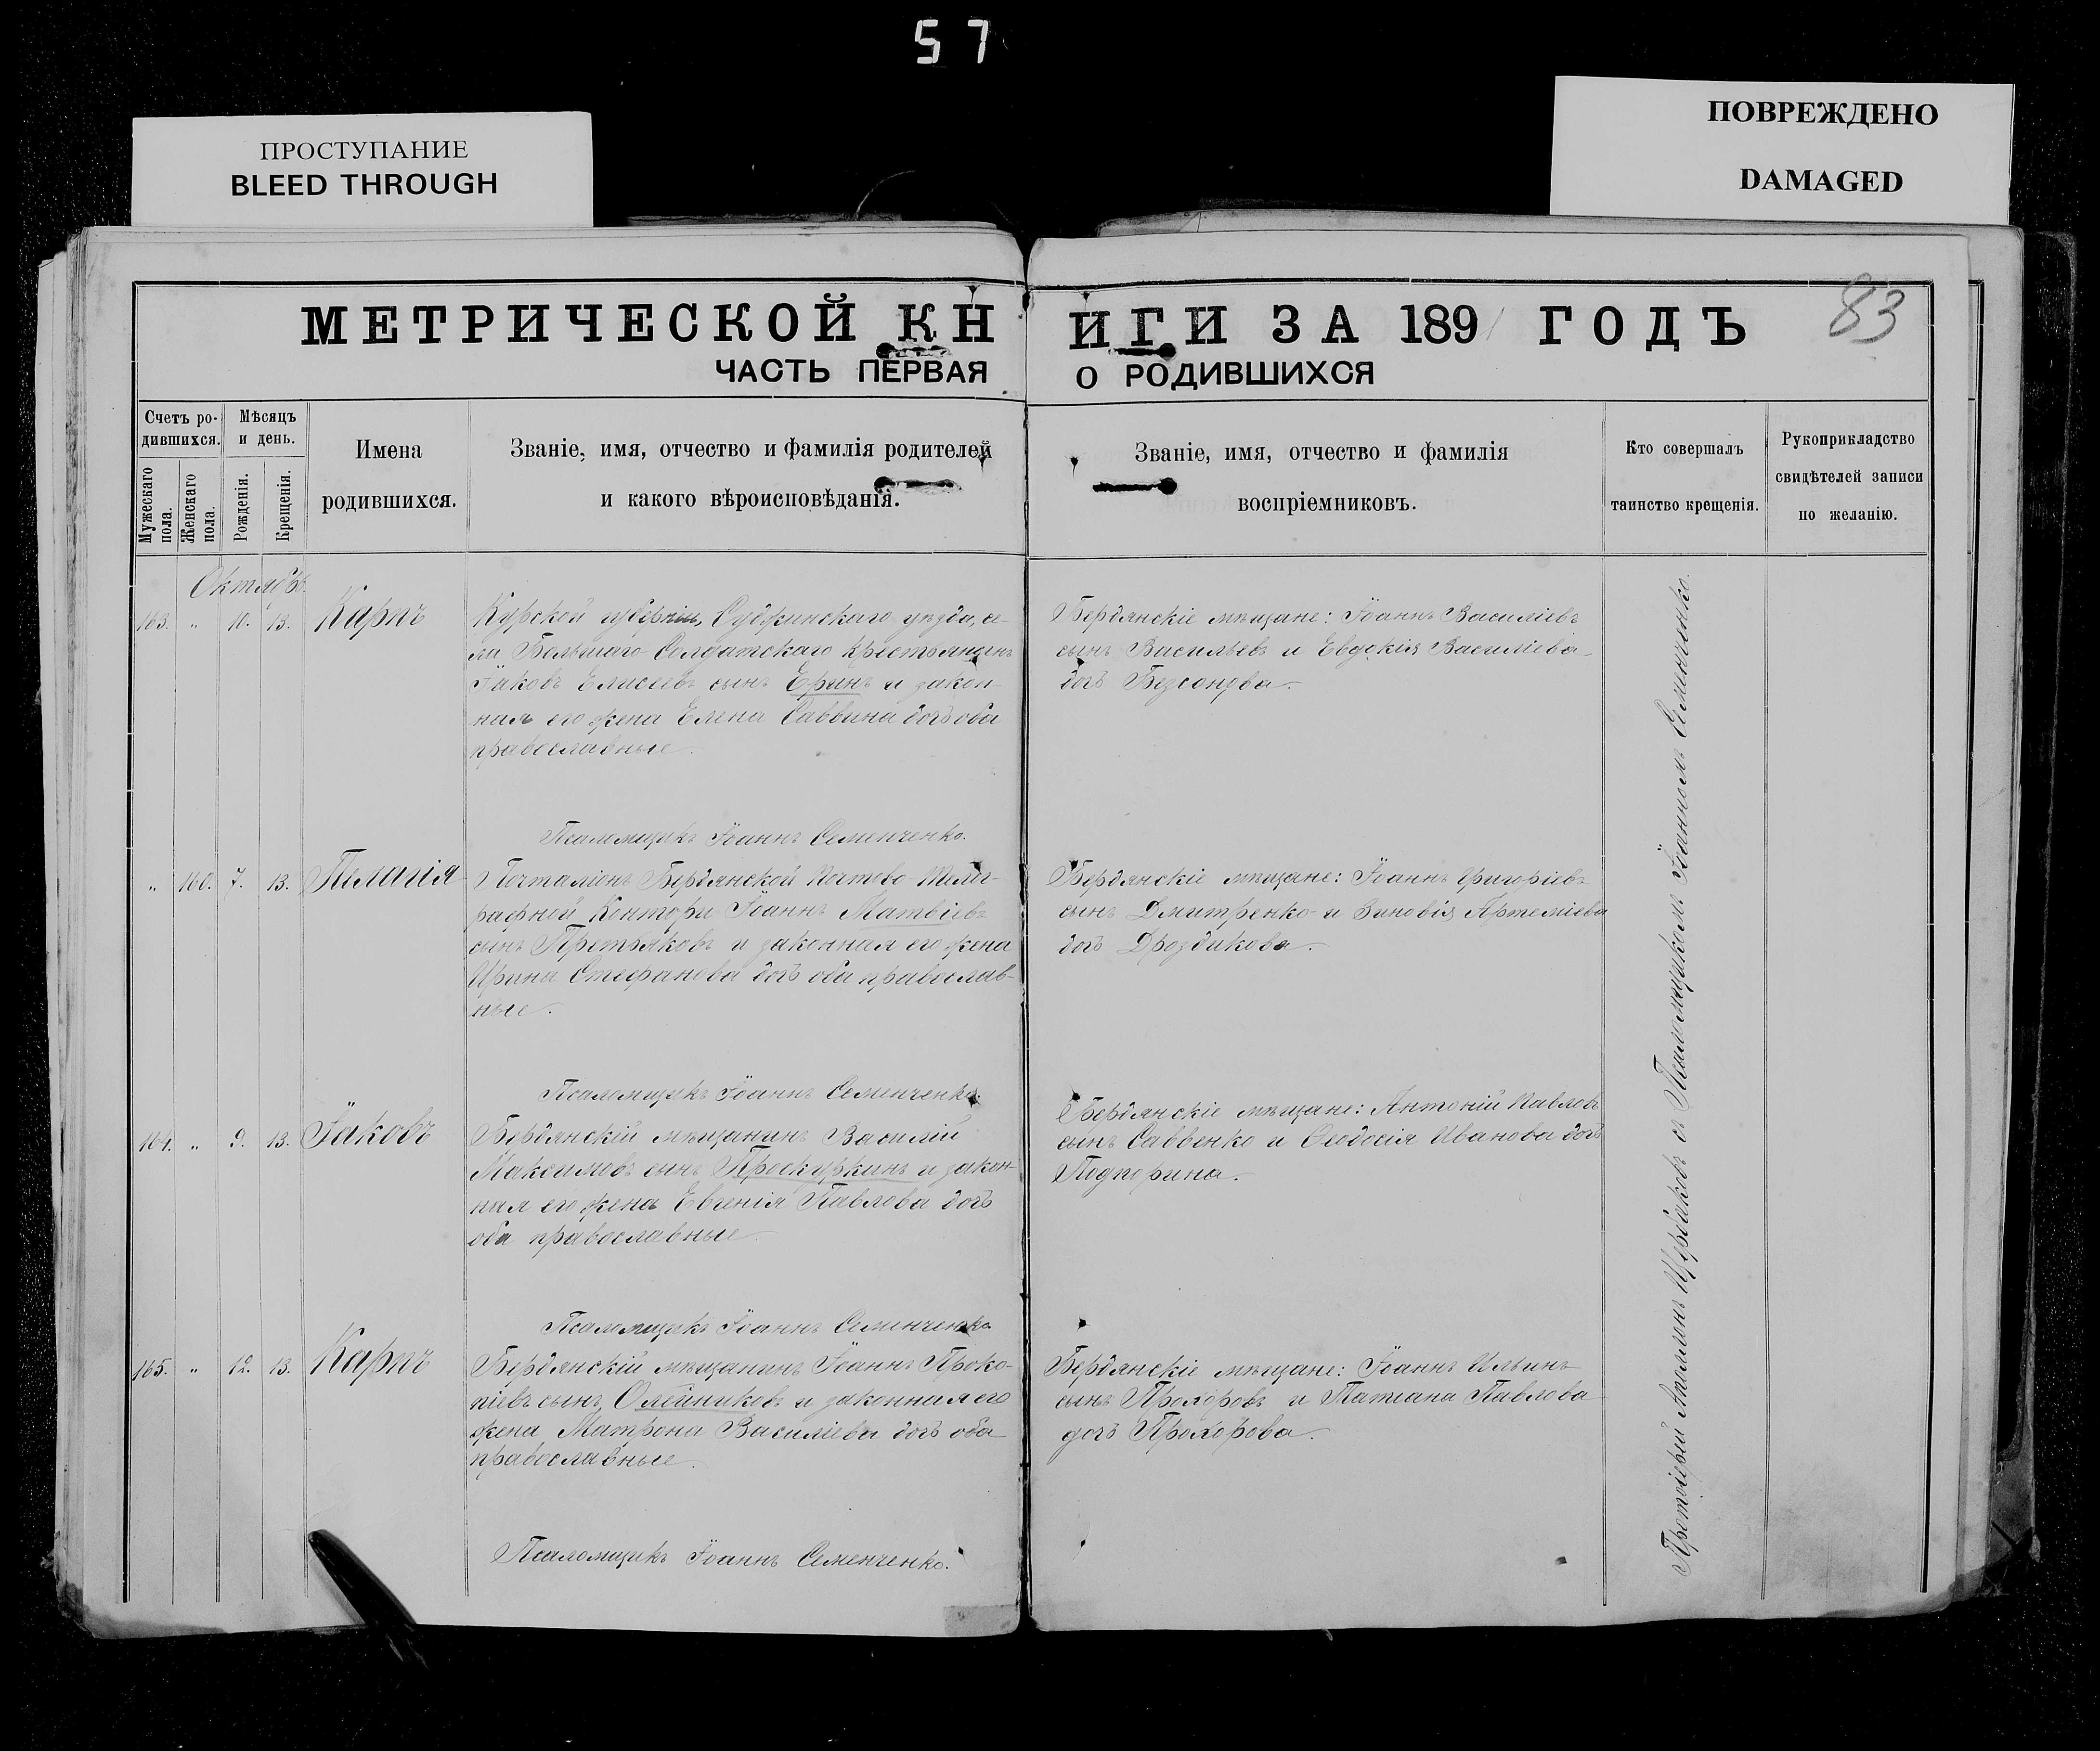 57
ПРОСТУПАНИЕ
BLEED THROUGH
ПОВРЕЖДЕНО
DAMAGED
МЕТРИЧЕСКОЙ КНИГИ ЗА 1891 ГОДЪ
83
ЧАСТЬ ПЕРВАЯ О РОДИВШИХСЯ
Счетъ ро-
дившихся.
Мужескаго пола.
Женскаго пола.
Мѣсяцъ
и день.
Рожденія.
Крещенія.
Имена
родившихся.
Званіе, имя, отчество и фамилія родителей
и какого вѣроисповѣданія.
Званіе, имя, отчество и фамилія
воспріемниковъ.
Кто совершалъ
таинство крещенія.
Рукоприкладство
свидѣтелей записи
по желанію.
Октябрь.
163. „ 10. 13. Карпъ
Курской губерніи, Суджинскаго уѣзда, се-
ла Большаго Солдатскаго крестьянинъ
Іаковъ Елисеевъ сынъ Еринъ и закон-
ная его жена Елена Саввина дочь оба
православные.
Псаломщикъ Іоаннъ Семенченко.
Бердянскіе мѣщане: Іоаннъ Василіевъ
сынъ Васильевъ и Евдокія Василіева
дочь Безсонова.
„ 160. 7. 13. Пелагія
Почталіонъ Бердянской Почтово-Телег-
рафной Конторы Іоаннъ Матвіевъ
сынъ Третьяковъ и законная его жена
Ирина Стефанова дочь оба православ-
ные.
Псаломщикъ Іоаннъ Семенченко.
Бердянскіе мѣщане: Іоаннъ Григоріевъ
сынъ Дмитренко и Зиновія Артеміева
дочь Дроздикова.
164. „ 9. 13. Іаковъ
Бердянскій мѣщанинъ Василій
Максимовъ сынъ Проскуркинъ и закон-
ная его жена Евгенія Павлова дочь
оба православные.
Псаломщикъ Іоаннъ Семенченко
Бердянскіе мѣщане: Антоній Павловъ
сынъ Саввенко и Ѳеодосія Иванова дочь
Подпорина.
165. „ 12. 13. Карпъ
Бердянскій мѣщанинъ Іоаннъ Проко-
піевъ сынъ Олейниковъ и законная его
жена Матрона Василіева дочь оба
православные.
Псаломщикъ Іоаннъ Семенченко.
Бердянскіе мѣщане: Іоаннъ Ильинъ
сынъ Прохоровъ и Татіана Павлова
дочь Прохорова.
Протоіерей Щербаковъ съ Псаломщикомъ Іоанномъ Семенченко.